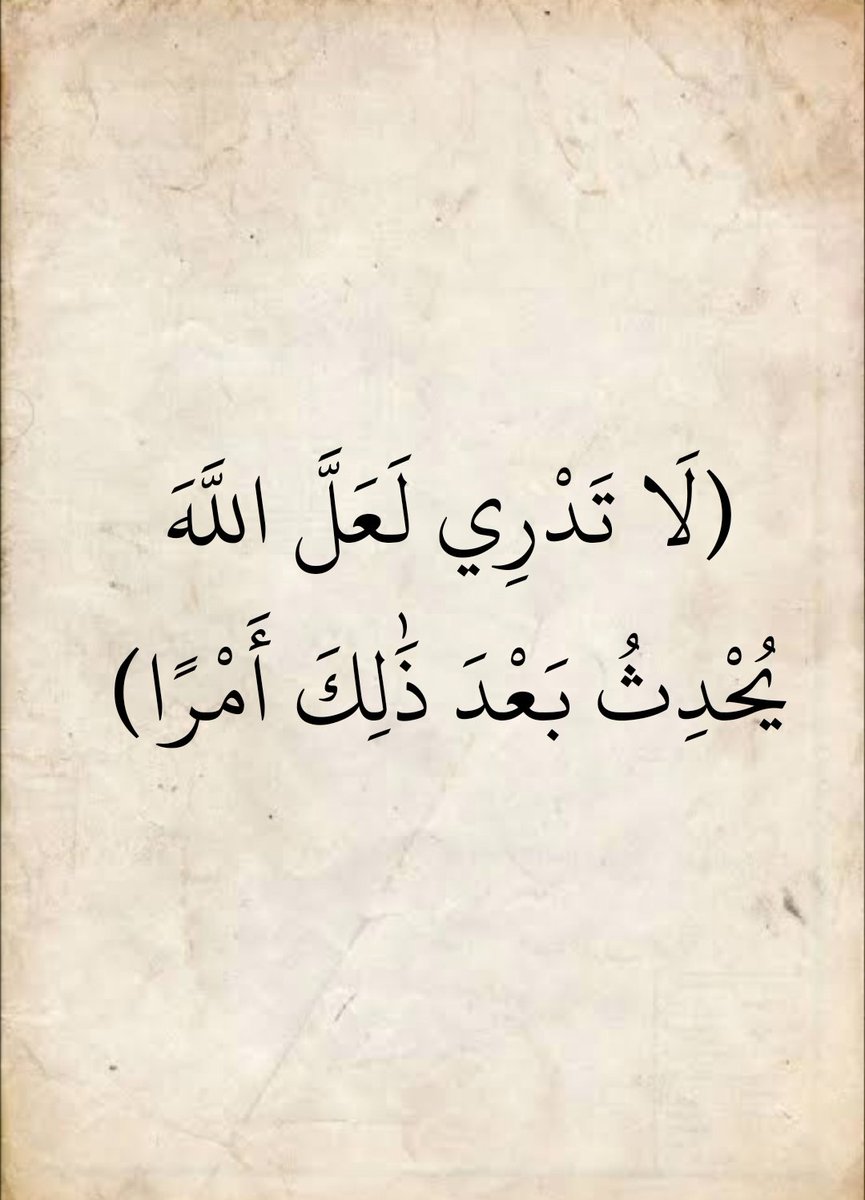 (لَا تَدْرِي لَعَلَّ اللَّهَ
يُحْدِثُ بَعْدَ ذَٰلِكَ أَمْرًا)